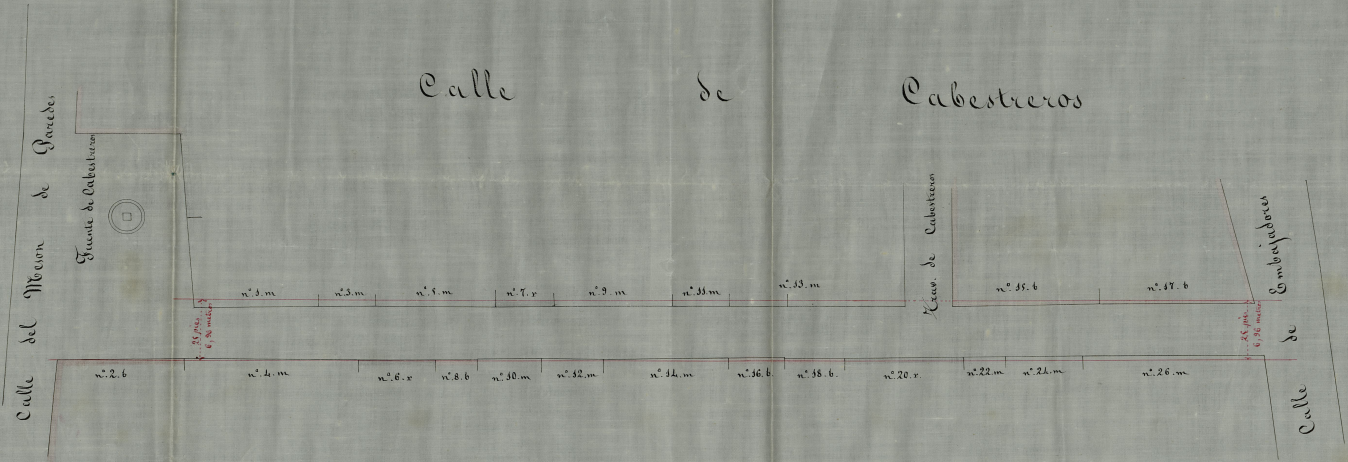 Calle de Cabestreros
Calle del Meson de Paredes
Fuente de Cabestreros
Trav. de Cabestreros
Calle de Embajadores
nº.1.m nº.3.m nº.5.m nº.7.r nº.9.m nº.11.m nº.13.m nº.15.b nº.17.b
25 pies
6,96 metros
25 pies
6,96 metros
nº.2.b nº.4.m nº.6.r nº.8.b nº.10.m nº.12.m nº.14.m nº.16.b. nº.18.b. nº.20.r. nº.22.m nº.24.m nº.26.m